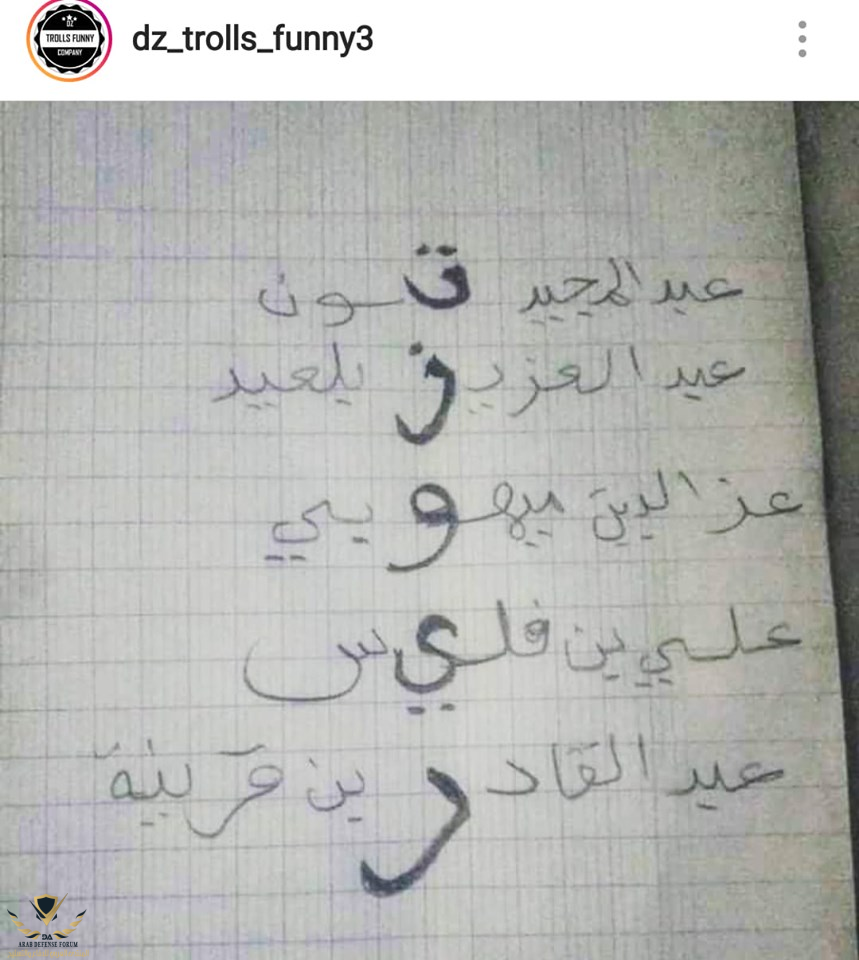 DZ
TROLLS FUNNY
COMPANY
dz_trolls_funny3
عبد المجيد تسون
عبد العزيز بلعيد
عز الدين ميهوبي
علي بن فليس
عبد القادر بن قرينة
DA
ARAB DEFENSE FORUM